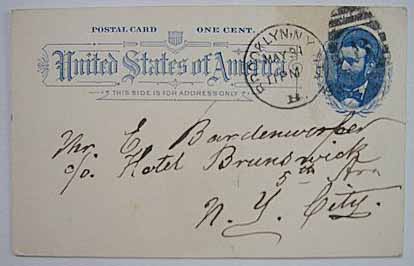 POSTAL CARD ONE CENT.
United States of America
THIS SIDE IS FOR ADDRESS ONLY
BROOKLYN, N.Y.
MAY
91
PM
Mr. E Bardenwerper
c/o. Hotel Brunswick
5th Ave
N. Y. City.